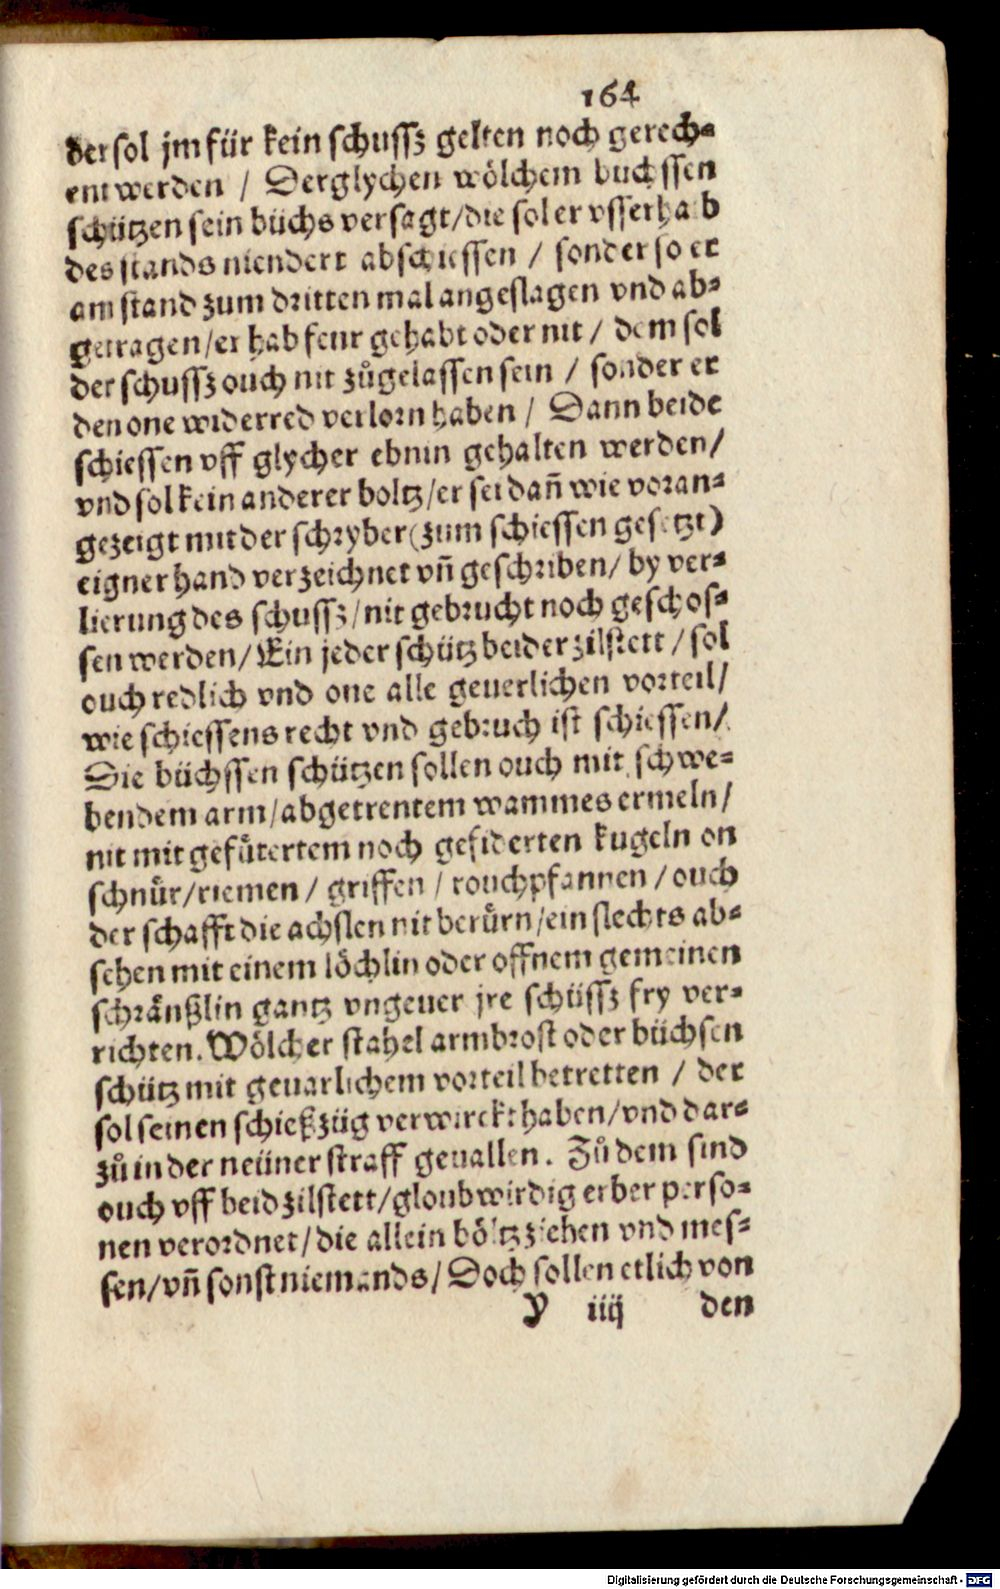 164
der sol jm für kein schussz gelten noch gerech⸗
ent werden / Derglychen wölchem buchssen
schützen sein büchs versagt/die sol er vsserhalb
des stands niendert abschiessen / sonder so er
am stand zum dritten mal angeslagen vnd ab⸗
getragen/er hab feur gehabt oder nit / dem sol
der schussz ouch nit zůgelassen sein / sonder er
den one widerred verlorn haben / Dann beide
schiessen vff glycher ebnin gehalten werden/
vnd sol kein anderer boltz/er sei dañ wie voran⸗
gezeigt mit der schryber (zum schiessen gesetzt)
eigner hand verzeichnet vñ geschriben/ by ver⸗
lierung des schussz/nit gebrucht noch geschos⸗
sen werden/ Ein jeder schütz beider zilstett / sol
ouch redlich vnd one alle geuerlichen vorteil/
wie schiessens recht vnd gebruch ist schiessen/
Die büchssen schützen sollen ouch mit schwe⸗
bendem arm/abgetrentem wammes ermeln/
nit mit gefůtertem noch gefiderten kugeln on
schnůr/riemen / griffen / rouchpfannen / ouch
der schafft die achslen nit berůrn/ein slechts ab⸗
sehen mit einem löchlin oder offnem gemeinen
schränßlin gantz vngeuer jre schüssz fry ver⸗
richten. Wölcher stahel armbrost oder büchsen
schütz mit geuarlichem vorteil betretten / der
sol seinen schießzüg verwirckt haben/vnd dar⸗
zů in der neüner straff geuallen. Zů dem sind
ouch vff beid zilstett/gloubwirdig erber perso⸗
nen verordnet/die allein böltz ziehen vnd mes⸗
sen/vñ sonst niemands/ Doch sollen etlich von
y iiij den
Digitalisierung gefördert durch die Deutsche Forschungsgemeinschaft - DFG